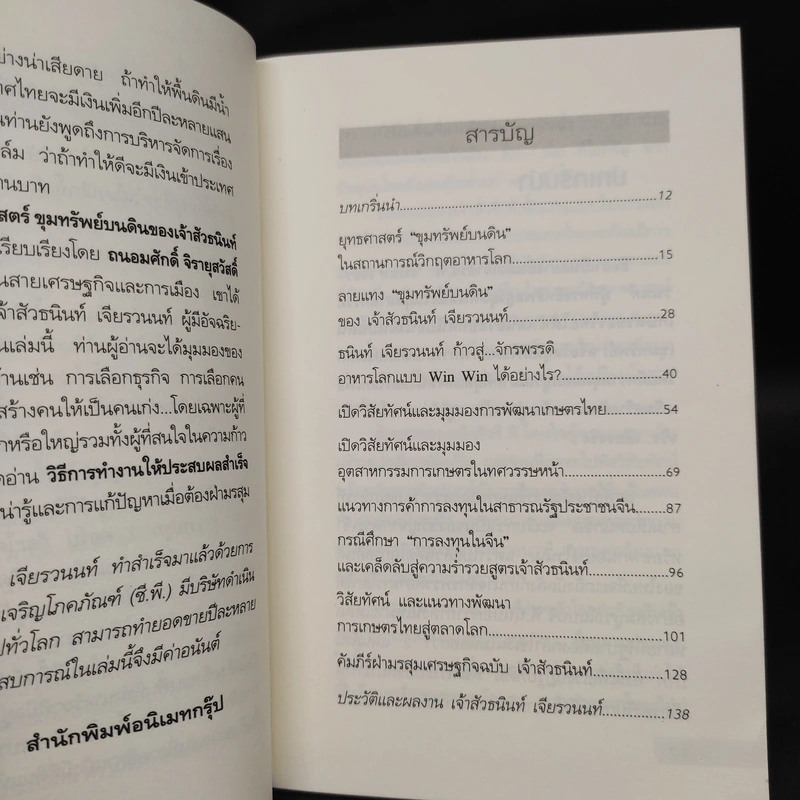 ย่างน่าเสียดาย ถ้าทำให้พื้นดินมีน้ำ
ทศไทยจะมีเงินเพิ่มอีกปีละหลายแสน
นท่านยังพูดถึงการบริหารจัดการเรื่อง
ล์ม ว่าถ้าทำให้ดีจะมีเงินเข้าประเทศ
านบาท
สตร์ ขุมทรัพย์บนดินของเจ้าสัวธนินท์
รียบเรียงโดย ถนอมศักดิ์ จิรายุสวัสดิ์
นสายเศรษฐกิจและการเมือง เขาได้
จ้าสัวธนินท์ เจียรวนนท์ ผู้มีอัจฉริย-
นเล่มนี้ ท่านผู้อ่านจะได้มุมมองของ
ด้านเช่น การเลือกธุรกิจ การเลือกคน
สร้างคนให้เป็นคนเก่ง...โดยเฉพาะผู้ที่
กหรือใหญ่รวมทั้งผู้ที่สนใจในความก้าว
ดอ่าน วิธีการทำงานให้ประสบผลสำเร็จ
น่ารู้และการแก้ปัญหาเมื่อต้องฝ่ามรสุม
เจียรวนนท์ ทำสำเร็จมาแล้วด้วยการ
เจริญโภคภัณฑ์ (ซี.พี.) มีบริษัทดำเนิน
ปทั่วโลก สามารถทำยอดขายปีละหลาย
สบการณ์ในเล่มนี้จึงมีค่าอนันต์
สำนักพิมพ์อนิเมทกรุ๊ป
สารบัญ
บทเกริ่นนำ 12
ยุทธศาสตร์ "ขุมทรัพย์บนดิน"
ในสถานการณ์วิกฤตอาหารโลก 15
ลายแทง "ขุมทรัพย์บนดิน"
ของ เจ้าสัวธนินท์ เจียรวนนท์ 28
ธนินท์ เจียรวนนท์ ก้าวสู่...จักรพรรดิ
อาหารโลกแบบ Win Win ได้อย่างไร? 40
เปิดวิสัยทัศน์และมุมมองการพัฒนาเกษตรไทย 54
เปิดวิสัยทัศน์และมุมมอง
อุตสาหกรรมการเกษตรในทศวรรษหน้า 69
แนวทางการค้าการลงทุนในสาธารณรัฐประชาชนจีน 87
กรณีศึกษา "การลงทุนในจีน"
และเคล็ดลับสู่ความร่ำรวยสูตรเจ้าสัวธนินท์ 96
วิสัยทัศน์ และแนวทางพัฒนา
การเกษตรไทยสู่ตลาดโลก 101
คัมภีร์ฝ่ามรสุมเศรษฐกิจฉบับ เจ้าสัวธนินท์ 128
ประวัติและผลงาน เจ้าสัวธนินท์ เจียรวนนท์ 138